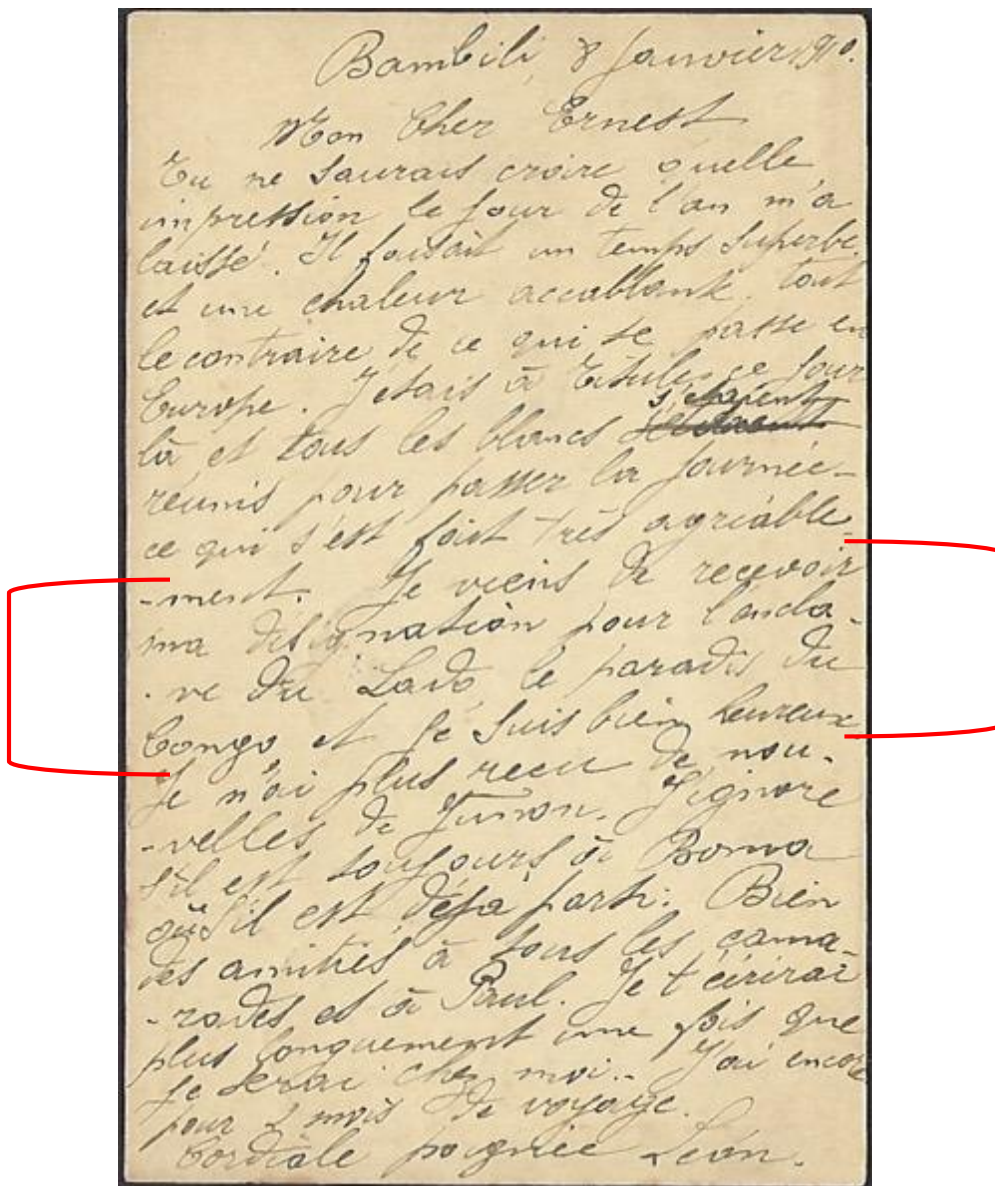 Bambili, 8 Janvier 1910.
Mon Cher Ernest
Tu ne saurais croire quelle
impression le jour de l'an m'a
laissé. Il faisait un temps superbe
et une chaleur accablante, tout
le contraire de ce qui se passe en
Europe. J'étais à Titulé ce jour
s'étaient
là et tous les blancs
réunis pour passer la journée
ce qui s'est fait très agréable
-ment. Je viens de recevoir
ma désignation pour l'encla-
-ve du Lado, le paradis du
Congo, et je suis bien heureux
Je n'ai plus recu de nou-
-velles de J'ignore
s'il est toujours à Boma
où s'il est déjà parti. Bien
des amitiés à tous les cama-
-rades et à Paul. Je t'écrirai
plus longuement une fois que
je serai chez moi.. J'ai encore
pour 2 mois de voyage.
Cordiale poignée Léon.